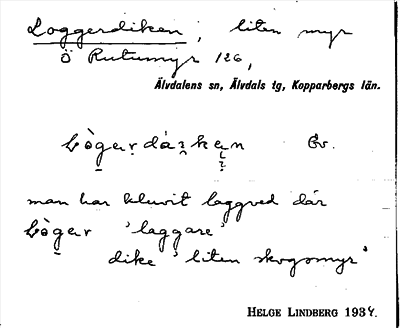 Loggerdiken, liten myr
Ö Rutumyr 126,
Älvdalens sn, Älvdals tg, Kopparbergs län.
lògardáı̯kęn Ev.
man har kluvit laggved där
lògar 'laggare'
dike 'liten skogsmyr'
HELGE LINDBERG 1934.